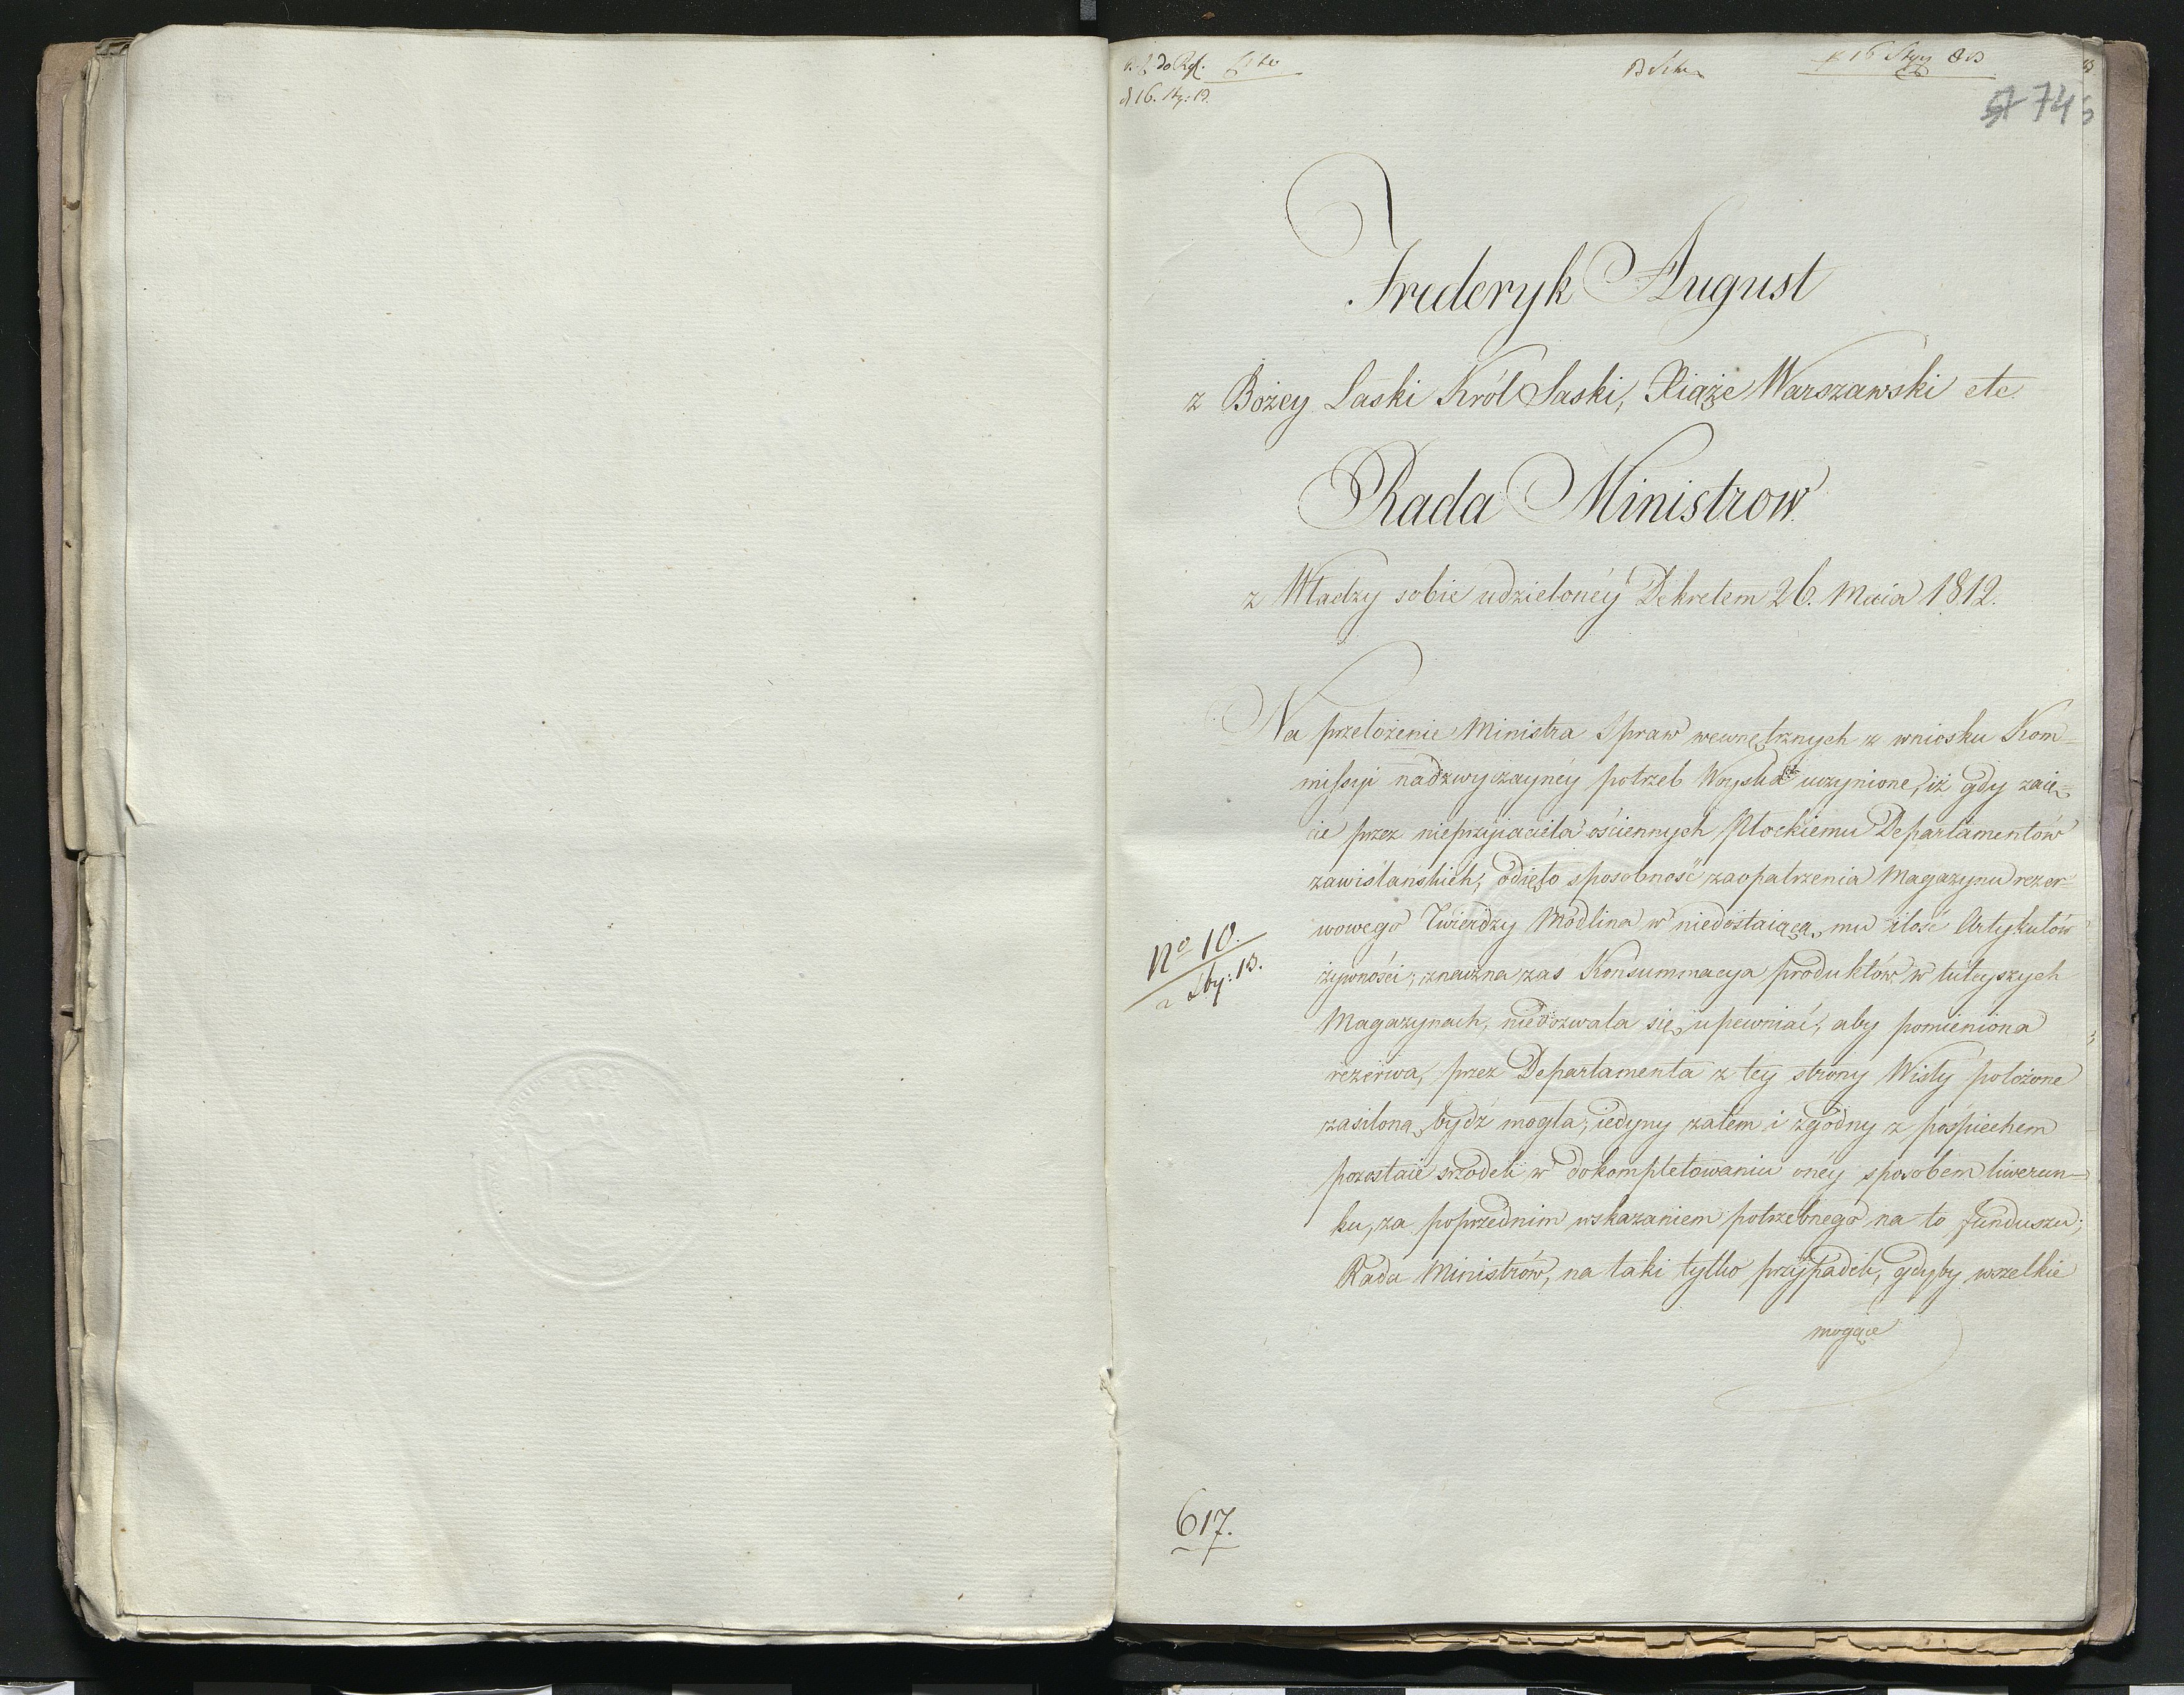 do Rgl.
d 16. Sty: 13.
16 Sty 813
74
Frederyk August
z Bożey Łaski Król Saski, Xiąże Warszawski etc.
Rada Ministrow
z Władzy sobie udzieloney Dekretem 26. Maia 1812.
Na przełożenie Ministra Spraw wewnętrznych z wniosku Kom=
missyi nadzwyczayney potrzeb Woyska uczynione, iż gdy zaię=
cie przez nieprzyiaciela ościennych Płockiemu Departamentów
zawiślańskich, odięło sposobność zaopatrzenia Magazynu rezer=
wowego Twierdzy Modlina w niedostaiącą mu ilość Artykułów
żywności; znaczna zaś Konsummacya produktów w tuteyszych
Magazynach, niedozwala się upewniać, aby pomieniona
rezerwa, przez Departamenta z tey strony Wisły położone
zasiloną bydź mogła, iedyny zatem i zgodny z pośpiechem
pozostaie srzodek w dokompletowaniu oney sposobem liwerun=
ku, za poprzednim wskazaniem potrzebnego na to funduszu;
Rada Ministrów, na taki tylko przypadek, gdyby wszelkie
mogące
No 10.
a Sty: 13.
617.